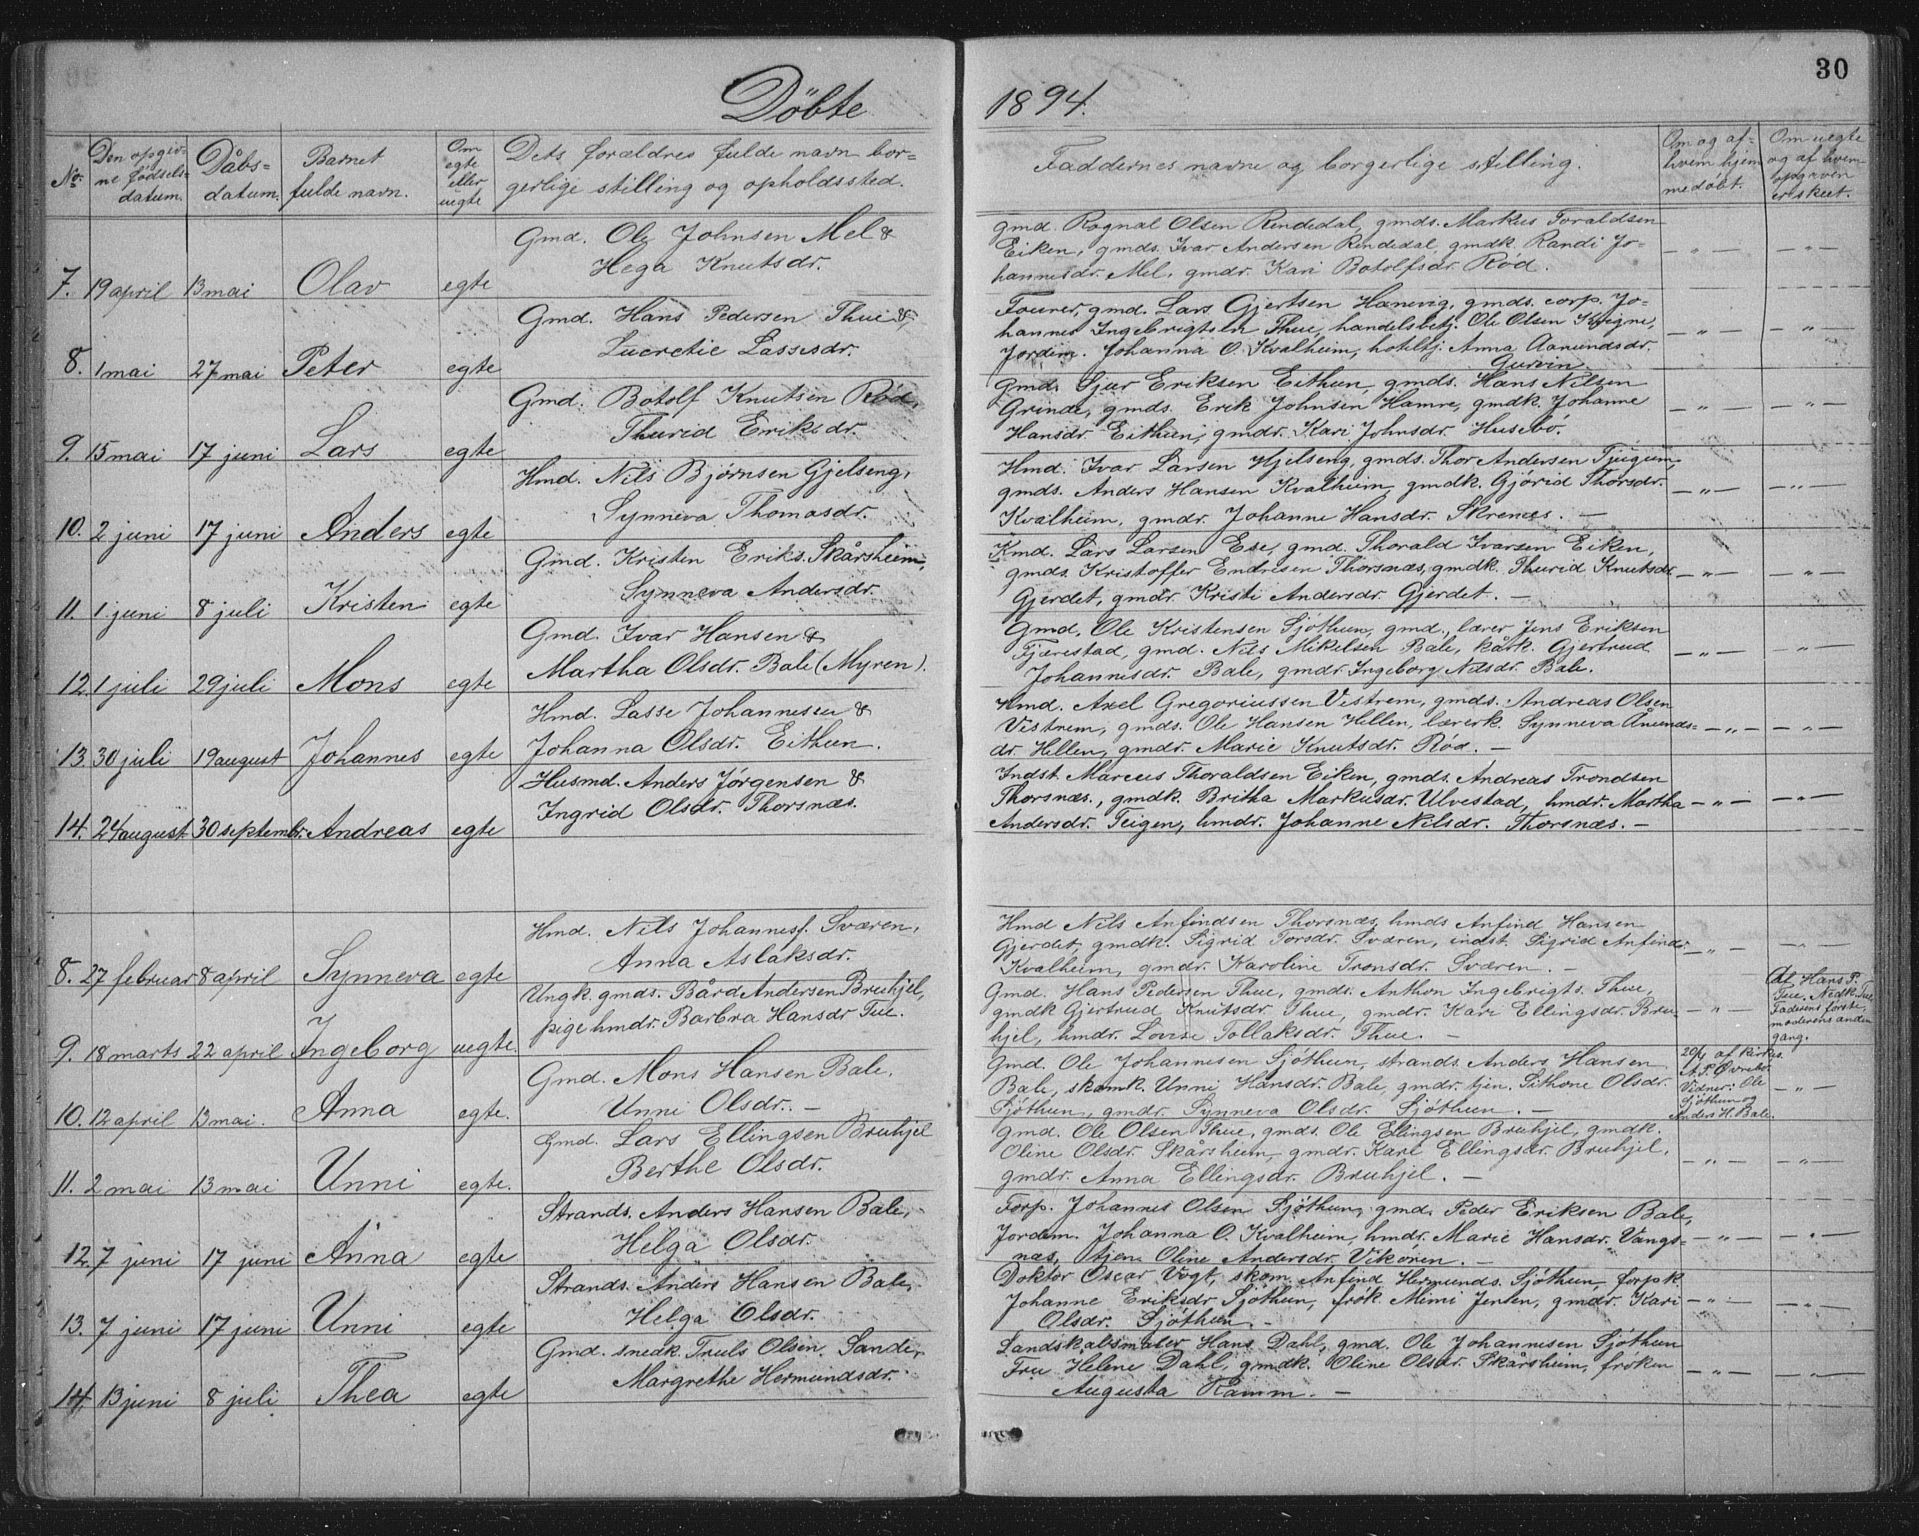 30
Döbte 1894.
No. Den opgiv-
ne fødsels-
datum. Dåbs-
datum. Barnet
fulde navn. Om
egte
eller
uegte Dets forældres fulde navn bor-
gerlige stilling og opholdssted. Faddernes navne og borgerlige stilling. Om og af
hvem hjem
medöbt. Om uegte
og af hvem
opgiven
erskeet.
7. 19 april 13 mai Olav egte
Gmd. Ole Johnsen Mel &
Hega Knutsdr.
gmd. Rognal Olsen Rendedal, gmds. Markus Toraldsen
Eiken, gmds. Ivar Andersen Rendedal, gmdk. Randi Jo-
hannesdr. Mel, gmdr. Kari Botolfsdr. Rød.
— „ — — „ —
8. 1 mai 27 mai Peter egte
Gmd. Hans Pedersen Thue &
Lucretie Lassesdr.
Fourer, gmd. Lars Gjertsen Hanevig, gmds. corp. Jo-
hannes Ingebrigtsen Thue, handelsbetj. Ole Olsen Kvigne,
Jordm. Johanna O. Kvalheim, hoteltj. Anna Aamundsdr.
Aurvin.
— „ — — „ —
9. 15 mai 17 juni Lars egte
Gmd. Botolf Knutsen Rød,
Thurid Eriksdr.
Gmd. Sjur Eriksen Eithun, gmds. Hans Nilsen
Grinde, gmds. Erik Johnsen Hamre, gmdk. Johanne
Hansdr. Eithun, gmdr. Kari Johnsdr. Husebö.
— „ — — „ —
10. 2 juni 17 juni Anders egte
Hmd. Nils Bjørnsen Gjelseng,
Synneva Thomasdr.
Hmd. Ivar Larsen Hjelseng, gmds. Thor Andersen Tjugum,
gmds. Anders Hansen Kvalheim, gmdk. Gjørid Thorsdr.
Kvalheim, gmdr. Johanne Hansdr. Skrenes. —
— „ — — „ —
11. 1 juni 8 juli Kristen egte
Gmd. Kristen Eriks. Skårsheim,
Synneva Andersdr.
Kmd. Lars Larsen Ese, gmd. Thorald Ivarsen Eiken,
gmds. Kristoffer Endresen Thorsnæs, gmdk. Thurid Knutsdr.
Gjerdet, gmdr. Kristi Andersdr. Gjerdet. —
— „ — — „ —
12. 1 juli 29 juli Mons egte
Gmd. Ivar Hansen &
Martha Olsdr. Bale (Myren).
Gmd. Ole Kristensen Sjöthun, gmd., lærer Jens Eriksen
Fjærestad, gmd. Nils Mikelsen Bale, kårk. Gjertrud
Johannesdr. Bale, gmdr. Ingeborg Nilsdr. Bale.
— „ — — „ —
13. 30 juli 19 august Johannes egte
Hmd. Lasse Johannesen &
Johanna Olsdr. Eithun.
Hmd. Axel Gregoriussen Vestrem, gmds. Andreas Olsen
Vestrem, gmds. Ole Hansen Hellen, lærerk. Synneva Ånunds-
dr. Hellen, gmdr. Marie Knutsdr. Röd. —
— „ — — „ —
14. 24 august 30 septembr. Andreas egte
Husmd. Anders Jörgensen &
Ingrid Olsdr. Thorsnæs.
Indst. Marcus Thoraldsen Eiken, gmds. Andreas Trondsen
Thorsnæs, gmdk. Britha Markusdr. Ulvestad, hmdr. Martha
Andersdr. Teigen, hmdr. Johanne Nilsdr. Thorsnæs. —
— „ — — „ —
8. 27 februar 8 april Synneva egte
Hmd. Nils Johannes. Sværen,
Anna Aslaksdr.
Hmd Nils Anfindsen Thorsnæs, hmds Anfind Hansen
Gjerdet, gmdk. Sigrid Torsdr. Sværen, indst. Sigrid Anfindsdr
Kvalheim, gmdr. Karoline Tronsdr. Sværen. —
— „ — — „ —
9. 18 marts 22 april Ingeborg uegte.
Ungk. gmds. Bård Andersen Bruhjel,
pige hmdr. Barbra Hansdr Tue.
Gmd. Hans Pedersen Thue, gmds. Anthon Ingebrigts. Thue,
gmdk Gjertrud Knutsdr. Thue, gmdr. Kari Ellingsdr. Bru-
hjel, hmdr. Lovise Tollaksdr. Thue. —
— „ —
Af Hans P.
Tue. Nedk. Tue.
Faderens förste,
moderens anden
gang.
10. 12 april 13 mai. Anna egte.
Gmd. Mons Hansen Bale,
Unni Olsdr. —
Gmd. Ole Johannesen Sjöthun, strands. Anders Hansen
Bale, skomk. Unni Hansdr. Bale, gmdr. tjen. Sithone Olsdr.
Sjöthun, gmdr. Synneva Olsdr. Sjöthun. —
20/4 af kirkes.
A. P. Övrebö.
Vidner: Ole
Sjöthun og
Anders H. Bale.
— „ —
11. 2 mai 13 mai Unni egte.
Gmd. Lars Ellingsen Bruhjel
Berthe Olsdr.
Gmd. Ole Olsen Thue, gmds. Ole Ellingsen Bruhjel, gmdk.
Oline Olsdr. Skårsheim, gmdr. Kari Ellingsdr. Bruhjel,
gmdr. Anna Ellingsdr. Bruhjel. —
— „ — — „ —
12. 7 juni 17 juni Anna egte
Strands. Anders Hansen Bale,
Helga Olsdr.
Forp. Johannes Olsen Sjöthun, gmd. Peder Eriksen Bale,
Jordm. Johanna O. Kvalheim, hmdr. Marie Hansdr. Vangs-
næs, tjen. Oline Andersdr. Vikören. —
— „ — — „ —
13. 7 juni 17 juni Unni egte
Strands. Anders Hansen Bale,
Helga Olsdr.
Doktor Oscar Vogt, skom. Anfind Hermunds. Sjöthun, forpk.
Johanne Eriksdr Sjöthun, frök. Mimi Jensen, gmdr. Kari
Olsdr. Sjöthun. —
— „ — — „ —
14. 13 juni 8 juli Thea egte
Gmd. snedk. Truls Olsen Sande,
Margrethe Hermundsdr.
Landskabsmaler Hans Dahl, gmd. Ole Johannesen Sjöthun
Fru Helene Dahl, gmdk. Oline Olsdr. Skårsheim, fröken
Augusta Ramm. —
— „ — — „ —